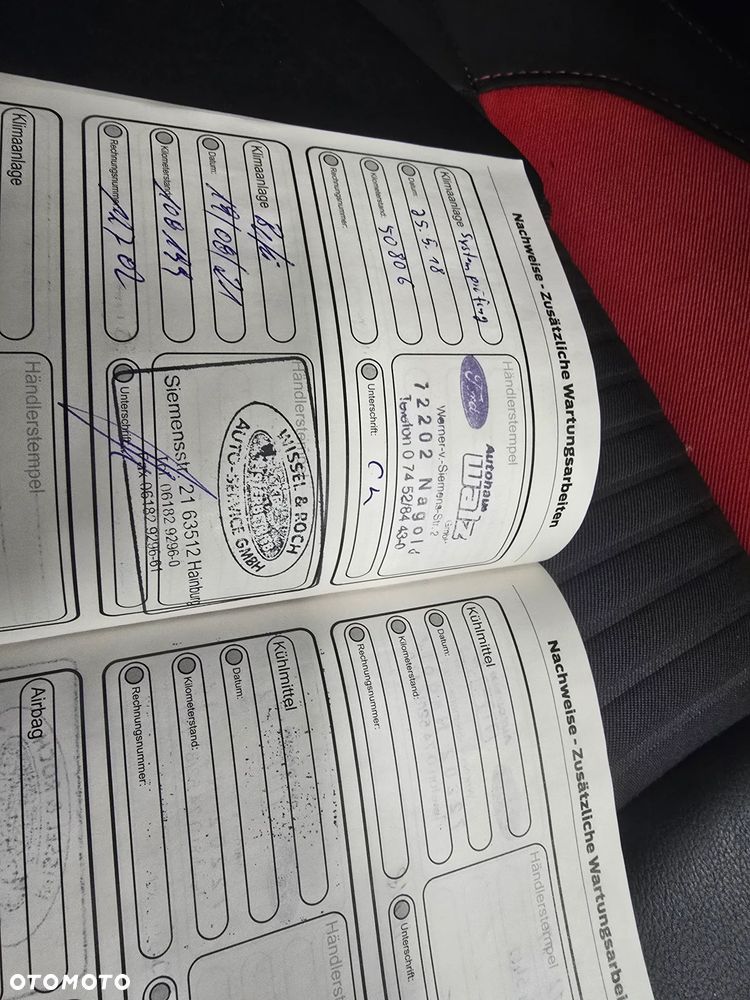 Nachweise - Zusätzliche Wartungsarbeiten
Klimaanlage Systemprüfung
Datum: 25.5.18
Kilometerstand: 50806
Rechnungsnummer:
Händlerstempel
Ford
Autohaus
GmbH
Werner-v.-Siemens-Str. 2
72202 Nagold
Telefon 0 74 52/84 43-0
Unterschrift:
Klimaanlage
Datum: 19/08/21
Kilometerstand:
Rechnungsnummer:
Händlerstempel
WISSEL & ROCH
AUTO-SERVICE GMBH
Siemensstr. 21 63512 Hainburg
06182 9296-0
06182 9296-61
Unterschrift:
Klimaanlage
Händlerstempel
Nachweise - Zusätzliche Wartungsarbei
Kühlmittel
Datum:
Kilometerstand:
Rechnungsnummer:
Händlerstempel
Unterschrift:
Kühlmittel
Datum:
Kilometerstand:
Rechnungsnummer:
Händlerst
Airbag
OTOMOTO